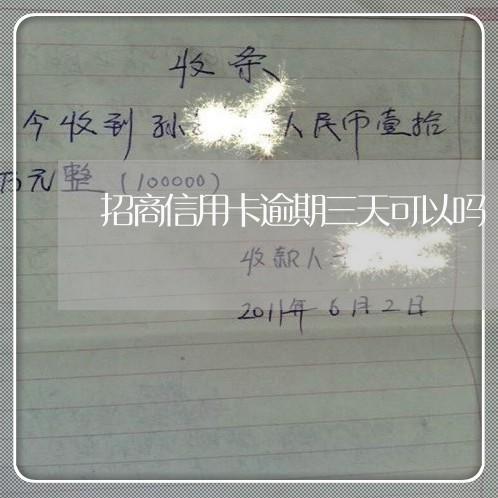 收条
今收到孙 人民币壹拾
万元整（100000）
招商信用卡逾期三天可以吗
收款人
2011年6月2日